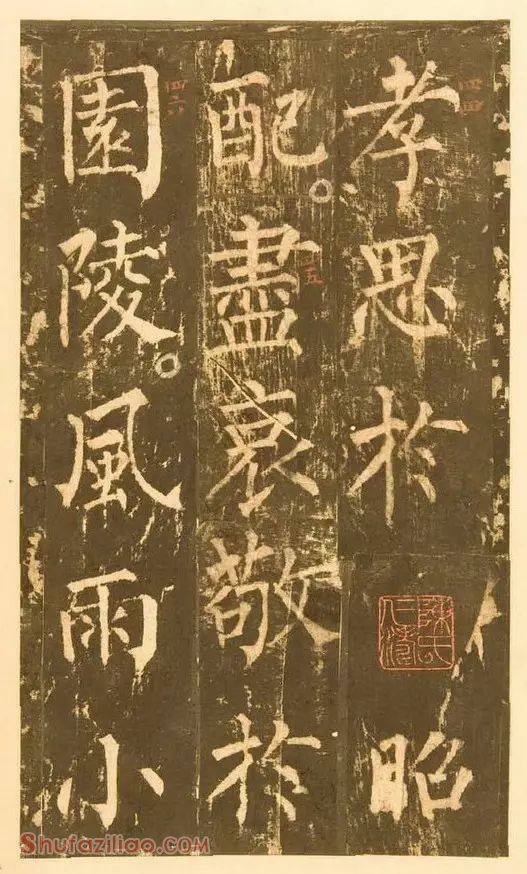 孝思於昭
配。盡哀敬於
園陵。風雨小
四四
五
四六
Shufaziliao.com